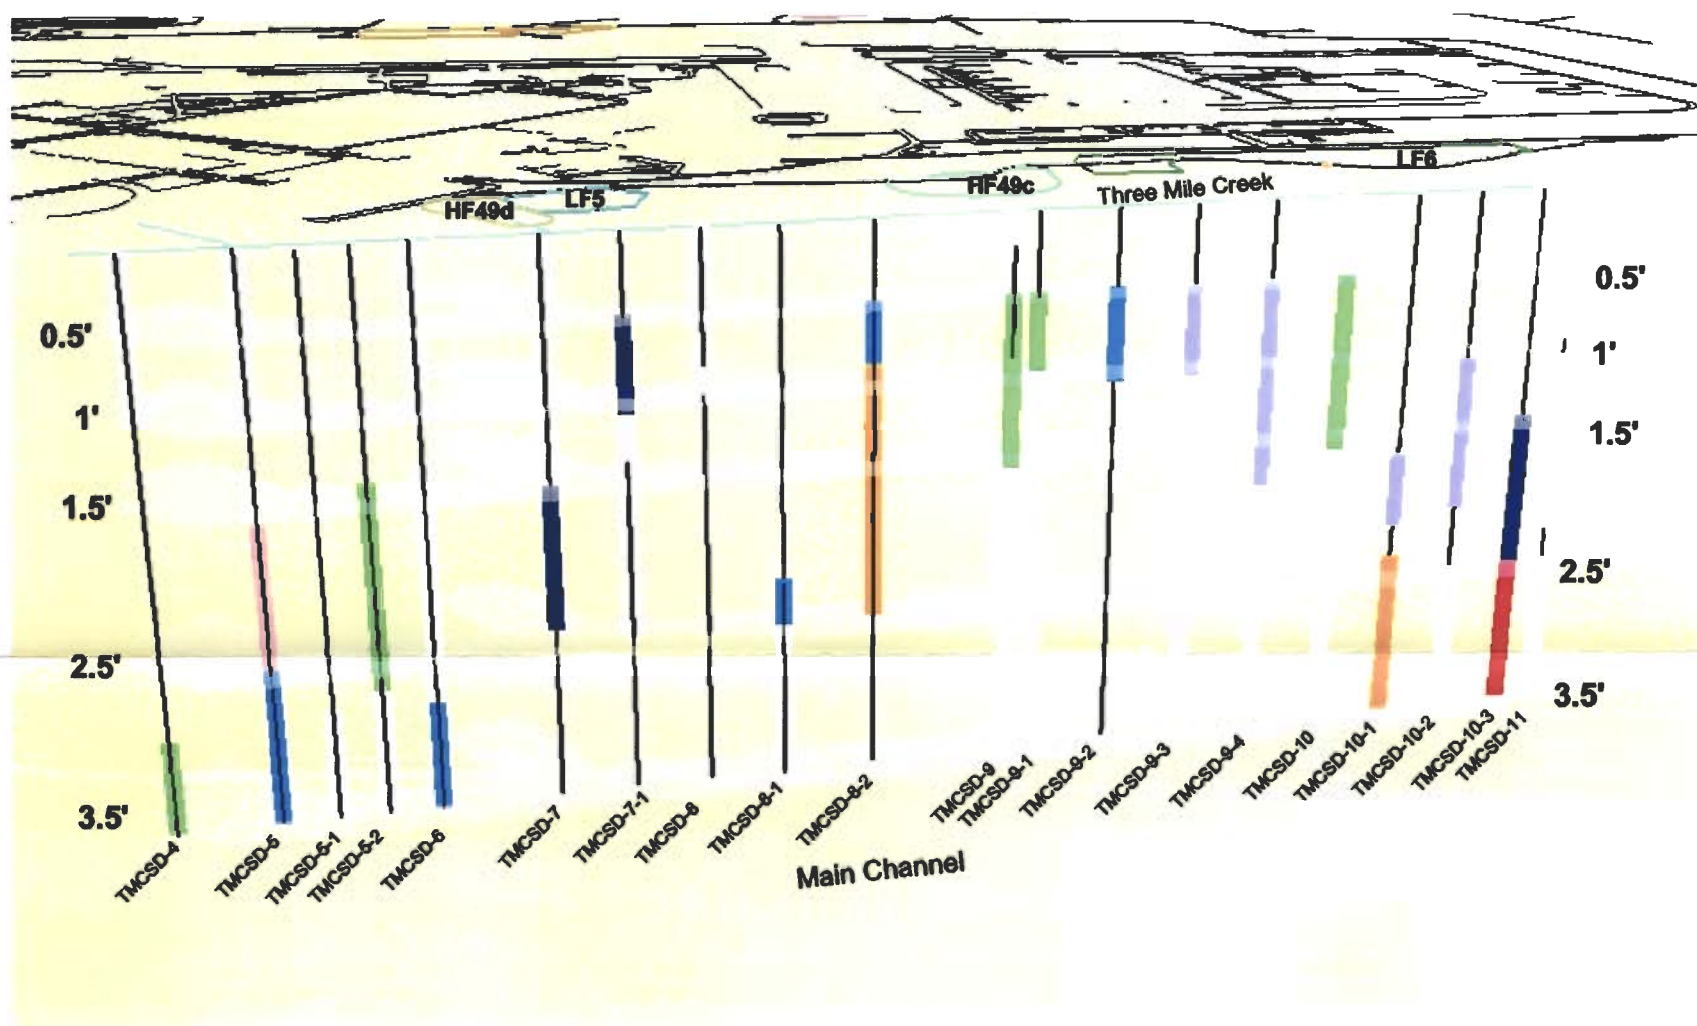 LF6
HF49c
Three Mile Creek
LF5
HF49d
0.5'
0.5'
1'
1'
1.5'
1.5'
2.5'
2.5'
3.5'
3.5'
TMCSD-4
TMCSD-5
TMCSD-5-1
TMCSD-5-2
TMCSD-6
TMCSD-7
TMCSD-7-1
TMCSD-8
TMCSD-8-1
TMCSD-8-2
TMCSD-9
TMCSD-9-1
TMCSD-9-2
TMCSD-9-3
TMCSD-9-4
TMCSD-10
TMCSD-10-1
TMCSD-10-2
TMCSD-10-3
TMCSD-11
Main Channel